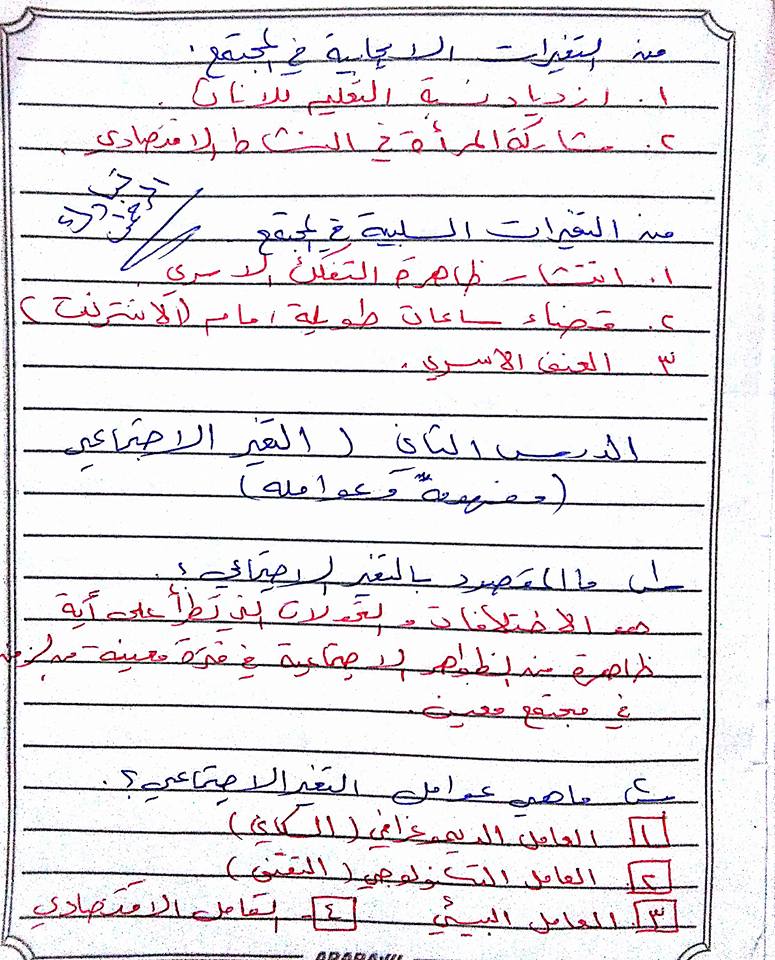 من التغيرات الايجابية في المجتمع .
١. ازدياد نسبة التعليم للاناث .
٢. مشاركة المرأة في النشاط الاقتصادي .
من التغيرات السلبية في المجتمع
١. انتشار ظاهرة التفكك الاسري .
٢. قضاء ساعات طويلة امام (الانترنت)
٣ العنف الاسري .
الدرس الثاني ( التغير الاجتماعي
(مفهومة وعوامله)
س/ ما المقصود بالتغير الاجتماعي ؟ .
هو الاختلافات والتحولات التي تطرأ على أية
ظاهرة من الظواهر الاجتماعية في فترة معينة من الزمن
في مجتمع معين .
س/ ماهي عوامل التغير الاجتماعي ؟ .
١ العامل الديموغرافي (السكاني)
٢ العامل التكنولوجي (التقني)
٣ العامل البيئي ٤ . العامل الاقتصادي